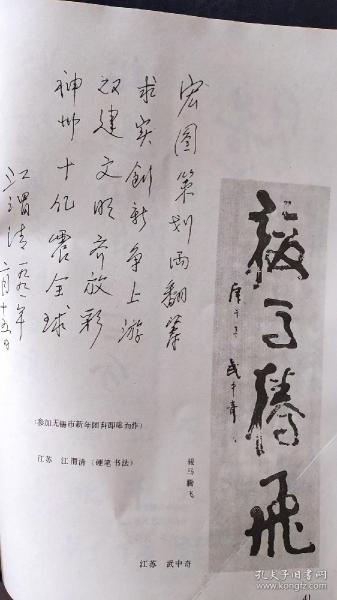 宏图策划两翻翠
求实创新争上游
双建文明齐放彩
神州十亿震全球
江渭清
一九九一年
二月十五日
(参加无锡市新年团拜即席而作)
江苏 江渭清(硬笔书法)
骏马腾飞
庚午 武中奇
骏马腾飞
江苏 武中奇
41
孔夫子旧书网